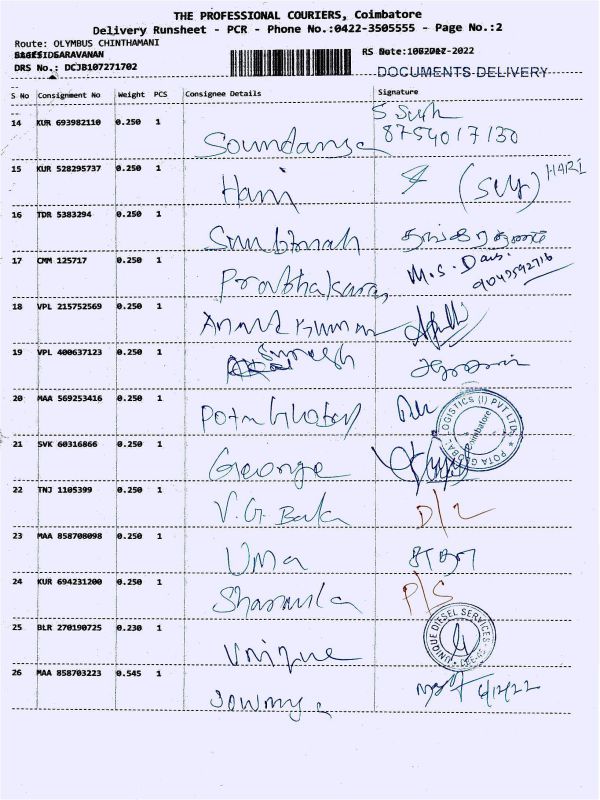 THE PROFESSIONAL COURIERS, Coimbatore
Delivery Runsheet - PCR - Phone No.:0422-3505555 - Page No.:2
Route: OLYMBUS CHINTHAMANI
SARAVANAN
DRS No.: DCJB107271702
DOCUMENTS DELIVERY
S No Consignment No Weight PCS Consignee Details Signature
14 KUR 693982110 0.250 1
8754017130
15 KUR 528295737 0.250 1
Hani (Suy) HARI
16 TDR 5383294 0.250 1
17 CMM 125717 0.250 1
Prabhakaran M.S. Dass.
9047592716
18 VPL 215752569 0.250 1
Anand Kumar
19 VPL 400637123 0.250 1
Suresh
20 MAA 569253416 0.250 1
Pota Global
POTA GLOBAL LOGISTICS (I) PVT LTD.
Coimbatore
21 SVK 60316866 0.250 1
George
22 TNJ 1105399 0.250 1
V.G. Bala D/L
23 MAA 858708098 0.250 1
Uma
24 KUR 694231200 0.250 1
Sharmila P/S
25 BLR 270190725 0.230 1
Unique
UNIQUE DIESEL SERVICES
26 MAA 858703223 0.545 1
Sowmya 6/12/22